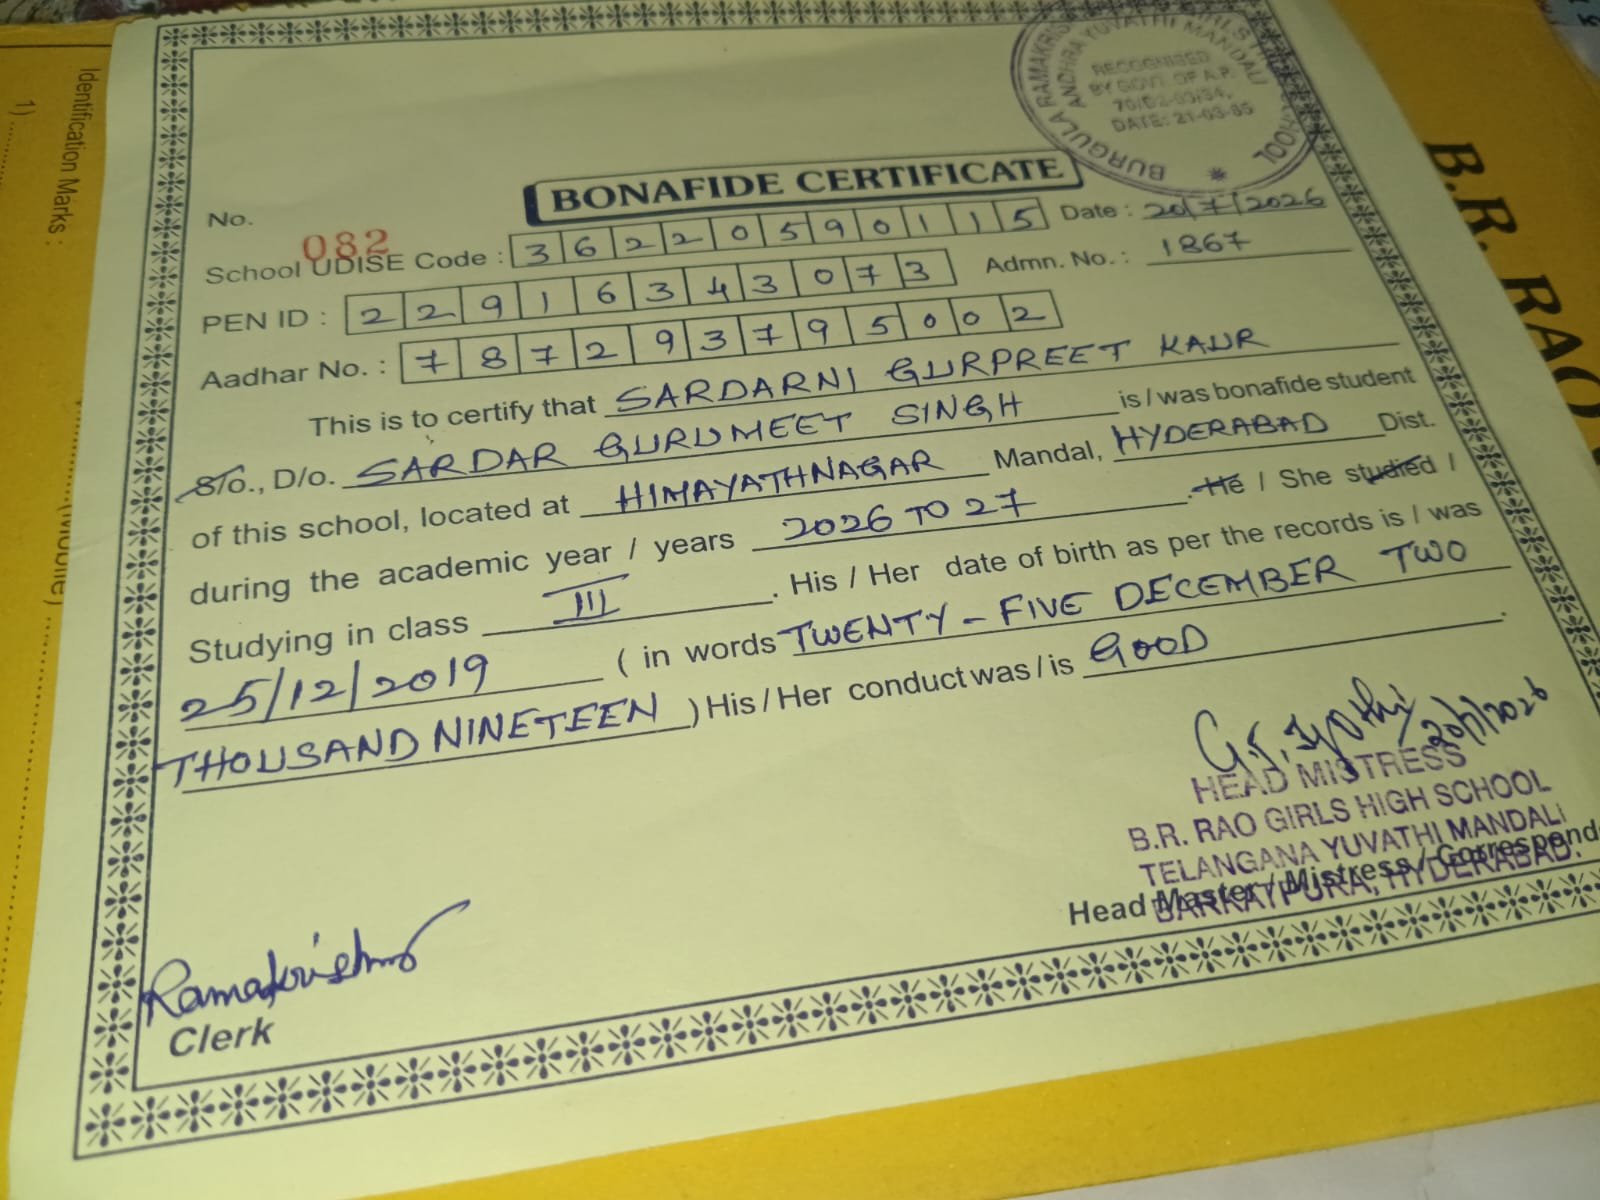 BURGULA RAMAKRIS
ANDHRA YUVATHI MANDALI
RECOGNISED
BY GOVT. OF A.P.
DATE: 21-03-85
BONAFIDE CERTIFICATE
No. 082
Date : 20/7/2026
School UDISE Code : 36220590115
Admn. No. : 1867
PEN ID : 22916343073
Aadhar No. : 787293795002
This is to certify that SARDARNI GURPREET KAUR
S/o., D/o. SARDAR GURUMEET SINGH is / was bonafide student
of this school, located at HIMAYATHNAGAR Mandal, HYDERABAD Dist.
during the academic year / years 2026 TO 27 . He / She studied /
Studying in class III . His / Her date of birth as per the records is / was
25/12/2019 ( in words TWENTY - FIVE DECEMBER TWO
THOUSAND NINETEEN ) His / Her conduct was / is GOOD .
20/7/2026
HEAD MISTRESS
B.R. RAO GIRLS HIGH SCHOOL
TELANGANA YUVATHI MANDALI
BARKATPURA, HYDERABAD.
Head Master / Mistress / Correspond
Ramakrishna
Clerk
Identification Marks :
1)
(Mobile)
B.R. RAO